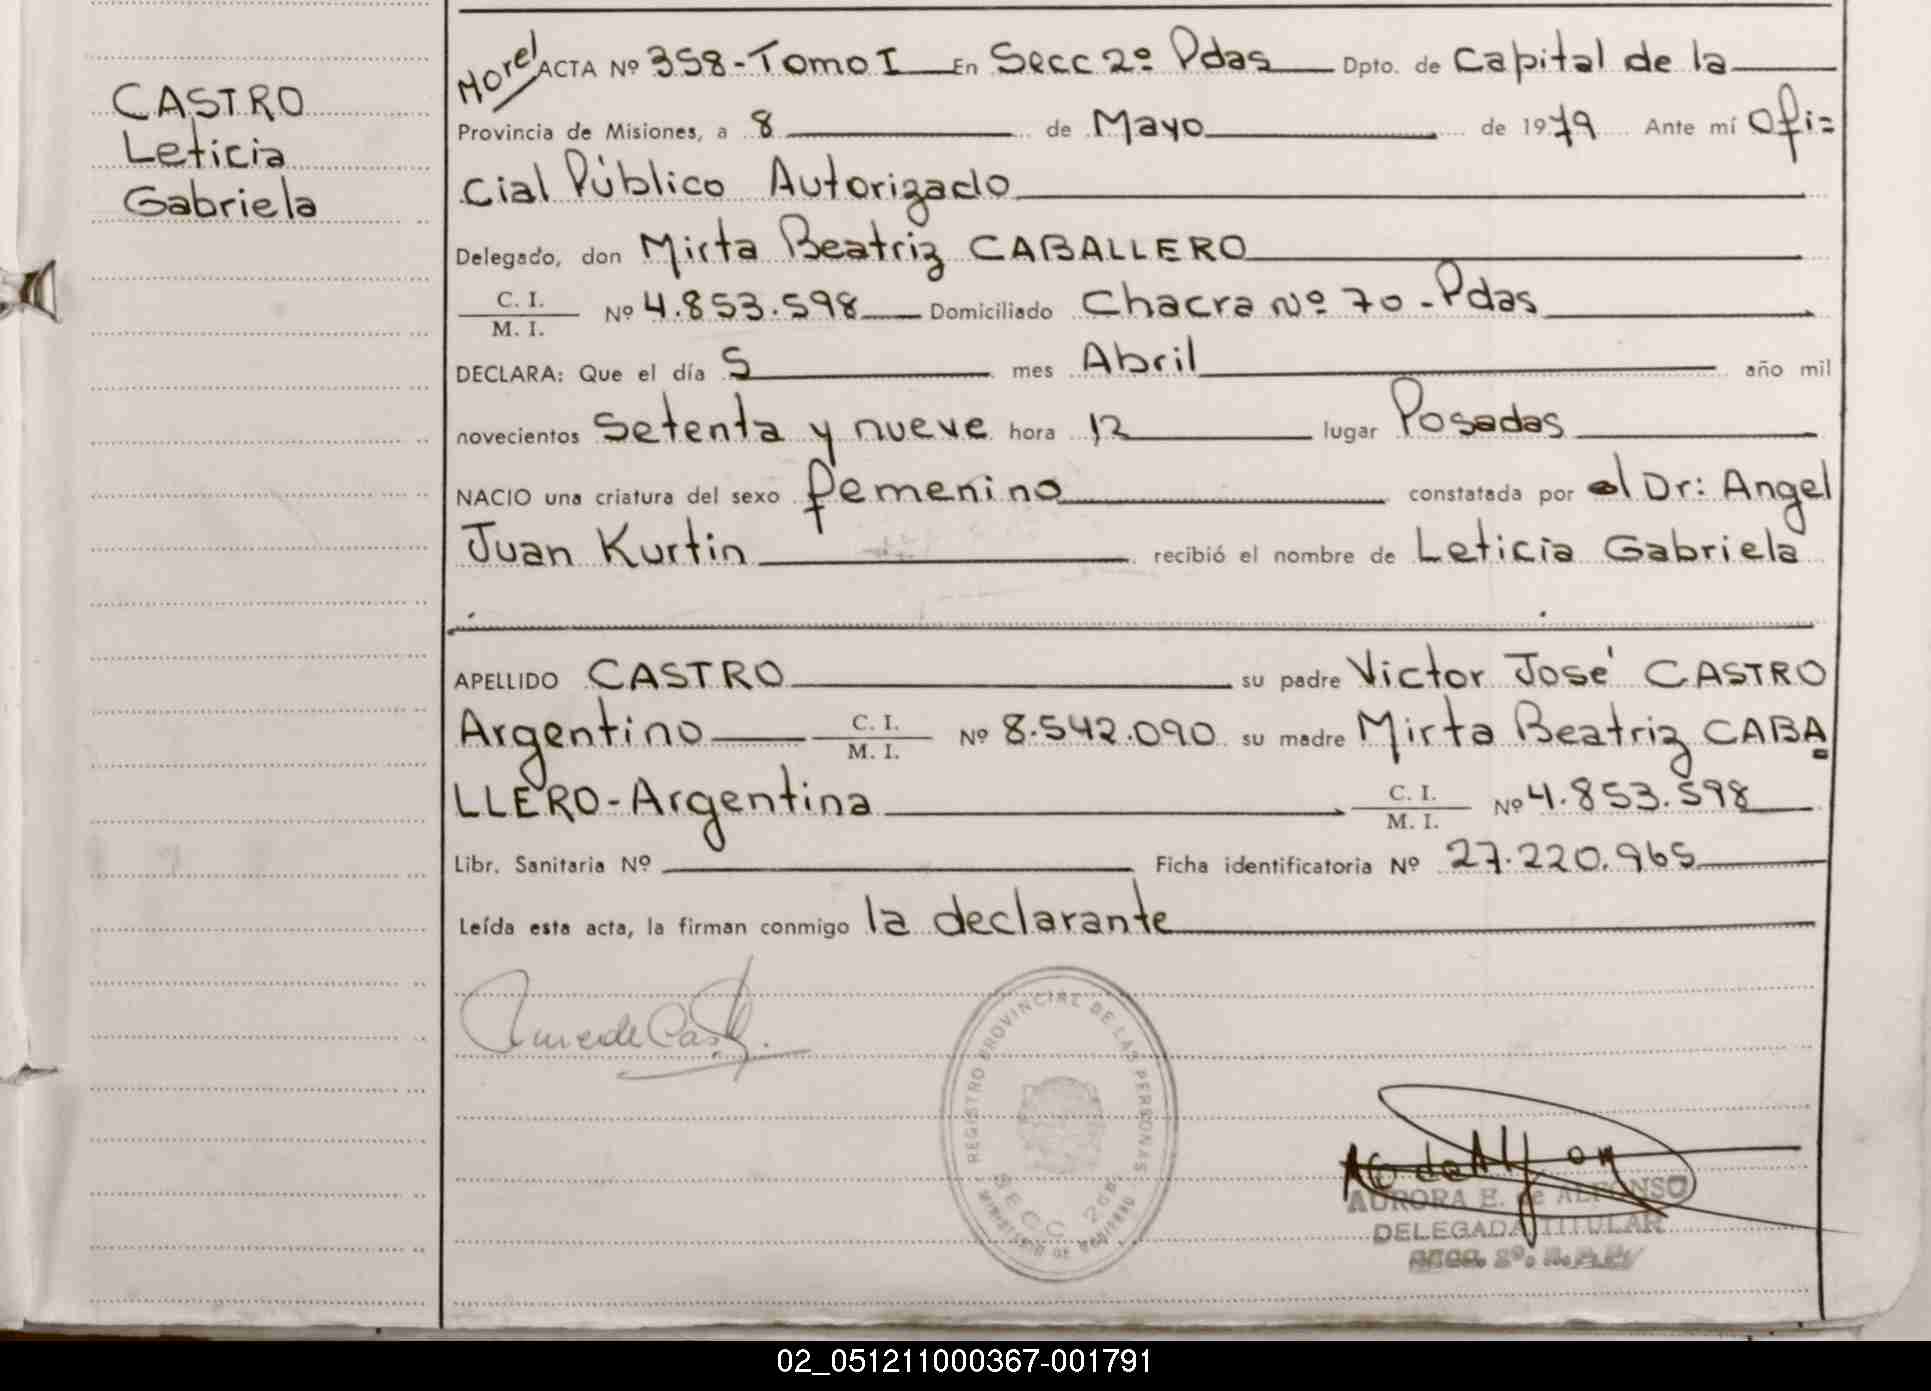 CASTRO
Leticia
Gabriela
Morel ACTA Nº 358-Tomo I En Secc 2º Pdas Dpto. de Capital de la
Provincia de Misiones, a 8 de Mayo de 1979 Ante mí Ofi=
cial Público Autorizado
Delegado, don Mirta Beatriz CABALLERO
C. I.
M. I. Nº 4.853.598 Domiciliado Chacra Nº 70-Pdas
DECLARA: Que el día 5 mes Abril año mil
novecientos setenta y nueve hora 12 lugar Posadas
NACIO una criatura del sexo femenino constatada por el Dr: Angel
Juan Kurtin recibió el nombre de Leticia Gabriela
APELLIDO CASTRO su padre Victor José CASTRO
Argentino C. I.
M. I. Nº 8.542.090 su madre Mirta Beatriz CABA
LLERO-Argentina C. I.
M. I. Nº 4.853.598
Libr. Sanitaria Nº Ficha identificatoria Nº 27.220.965
Leída esta acta, la firman conmigo la declarante
REGISTRO PROVINCIAL DE LAS PERSONAS
SECC 2da
MINISTERIO DE GOBIERNO
AURORA E. de ALFONSO
DELEGADA TITULAR
SECC. 2º. R.P.P.
02_051211000367-001791